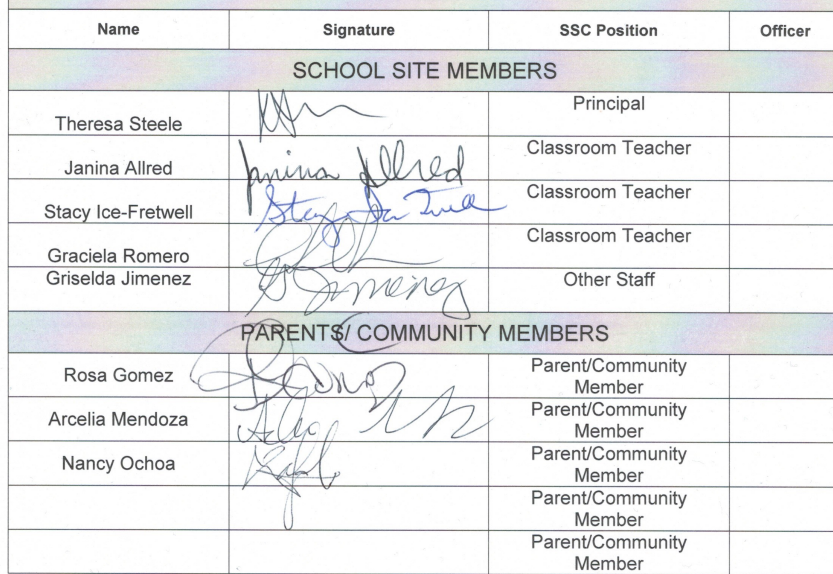 Name Signature SSC Position Officer
SCHOOL SITE MEMBERS
Theresa Steele Principal
Janina Allred Janina Allred Classroom Teacher
Stacy Ice-Fretwell Classroom Teacher
Graciela Romero Classroom Teacher
Griselda Jimenez G Jimenez Other Staff
PARENTS/ COMMUNITY MEMBERS
Rosa Gomez Parent/Community
Member
Arcelia Mendoza Parent/Community
Member
Nancy Ochoa Parent/Community
Member
Parent/Community
Member
Parent/Community
Member